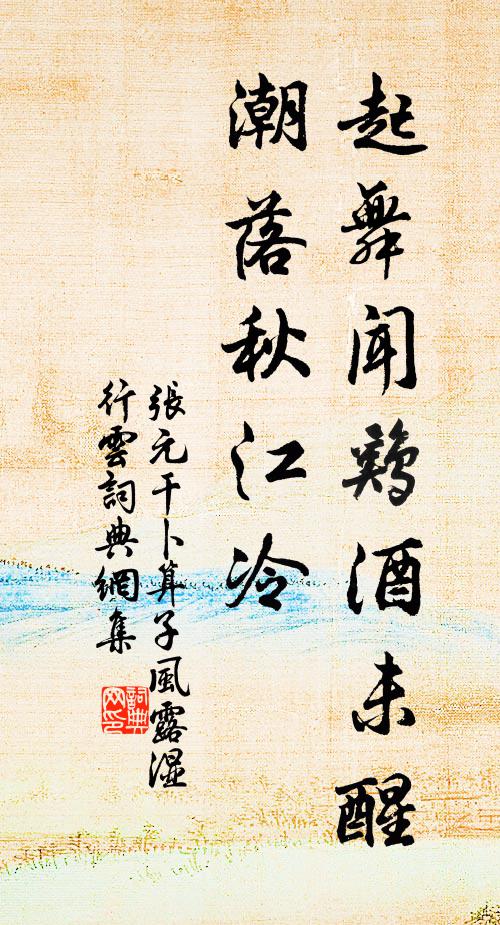 起舞聞鷄酒未醒
潮落秋江冷
張元干卜算子風露濕
行雲詞典網集
詞典网印